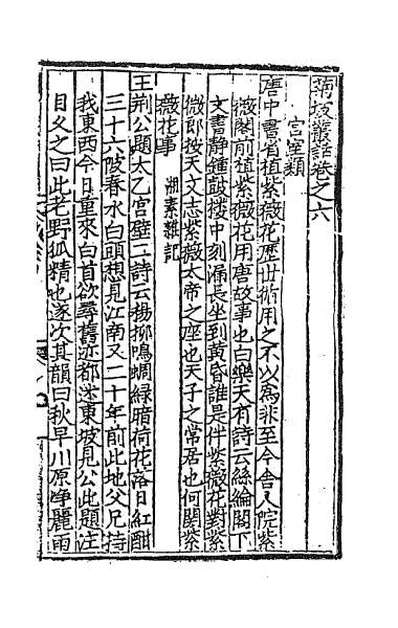 蘭坡叢話卷之六
宮室類
唐中書省植紫薇花歷世術用之不以為非至今舎人院紫
薇閣前植紫薇花用唐故事也白樂天有詩云絲綸閣下
文書静鍾鼓楼中刻漏長坐到黄昏誰是伴紫薇花對紫
微郎按天文志紫薇太帝之座也天子之常居也何関紫
薇花事 湘素雜記
王荆公題太乙宮壁二詩云楊柳鳴蜩緑暗荷花落日紅酣
三十六陂春水白頭想見江南又二十年前此地父兄持
我東西今日重來白首欲尋舊迹都迷東坡見公此題注
目久之曰此老野狐精也遂次其韻曰秋早川原净麗雨